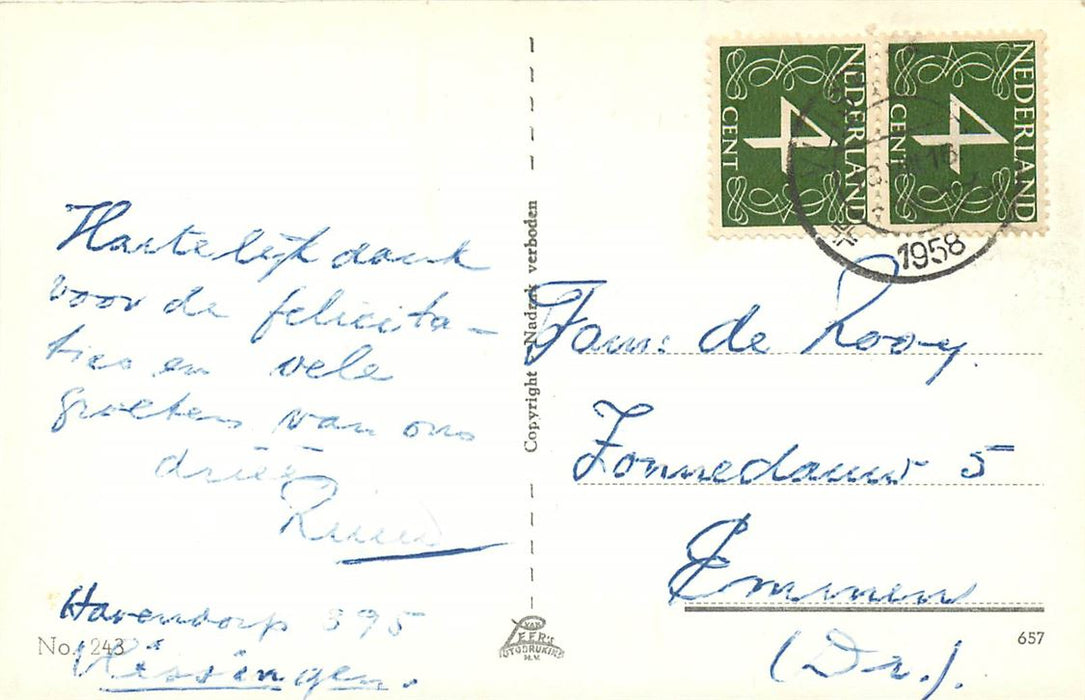 Hartelijk dank
voor de felicita-
ties en vele
groeten van ons
drieën
Ruud
Havendorp 395
Vlissingen.
No. 243
Copyright Nadruk verboden
VAN
LEER'S
FOTODRUKIND
N.V.
NEDERLAND
4
CENT
NEDERLAND
4
CENT
1958
Fam. de Rooy.
Zonnedauw 5
Emmen
(Dr.).
657